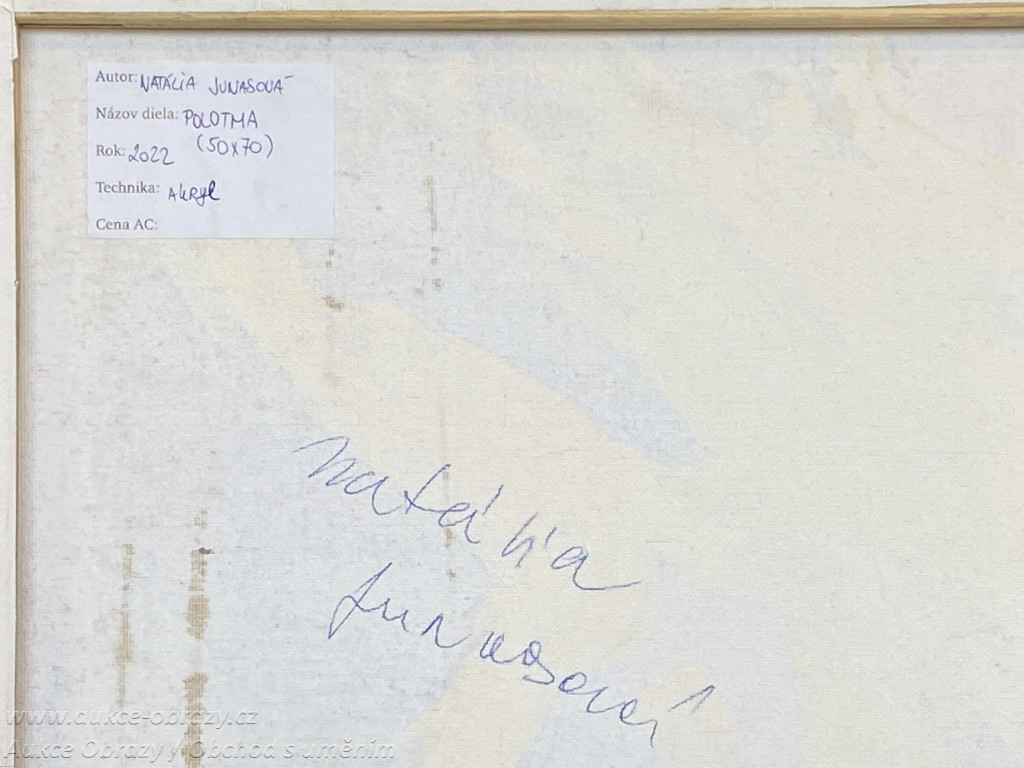 Autor: NATÁLIA JUNASOVÁ
Názov diela: POLOTMA
(50x70)
Rok: 2022
Technika: Akryl
Cena AC:
Natália
Junasová
www.aukce-obrazy.cz
Aukce Obrazy / Obchod s uměním